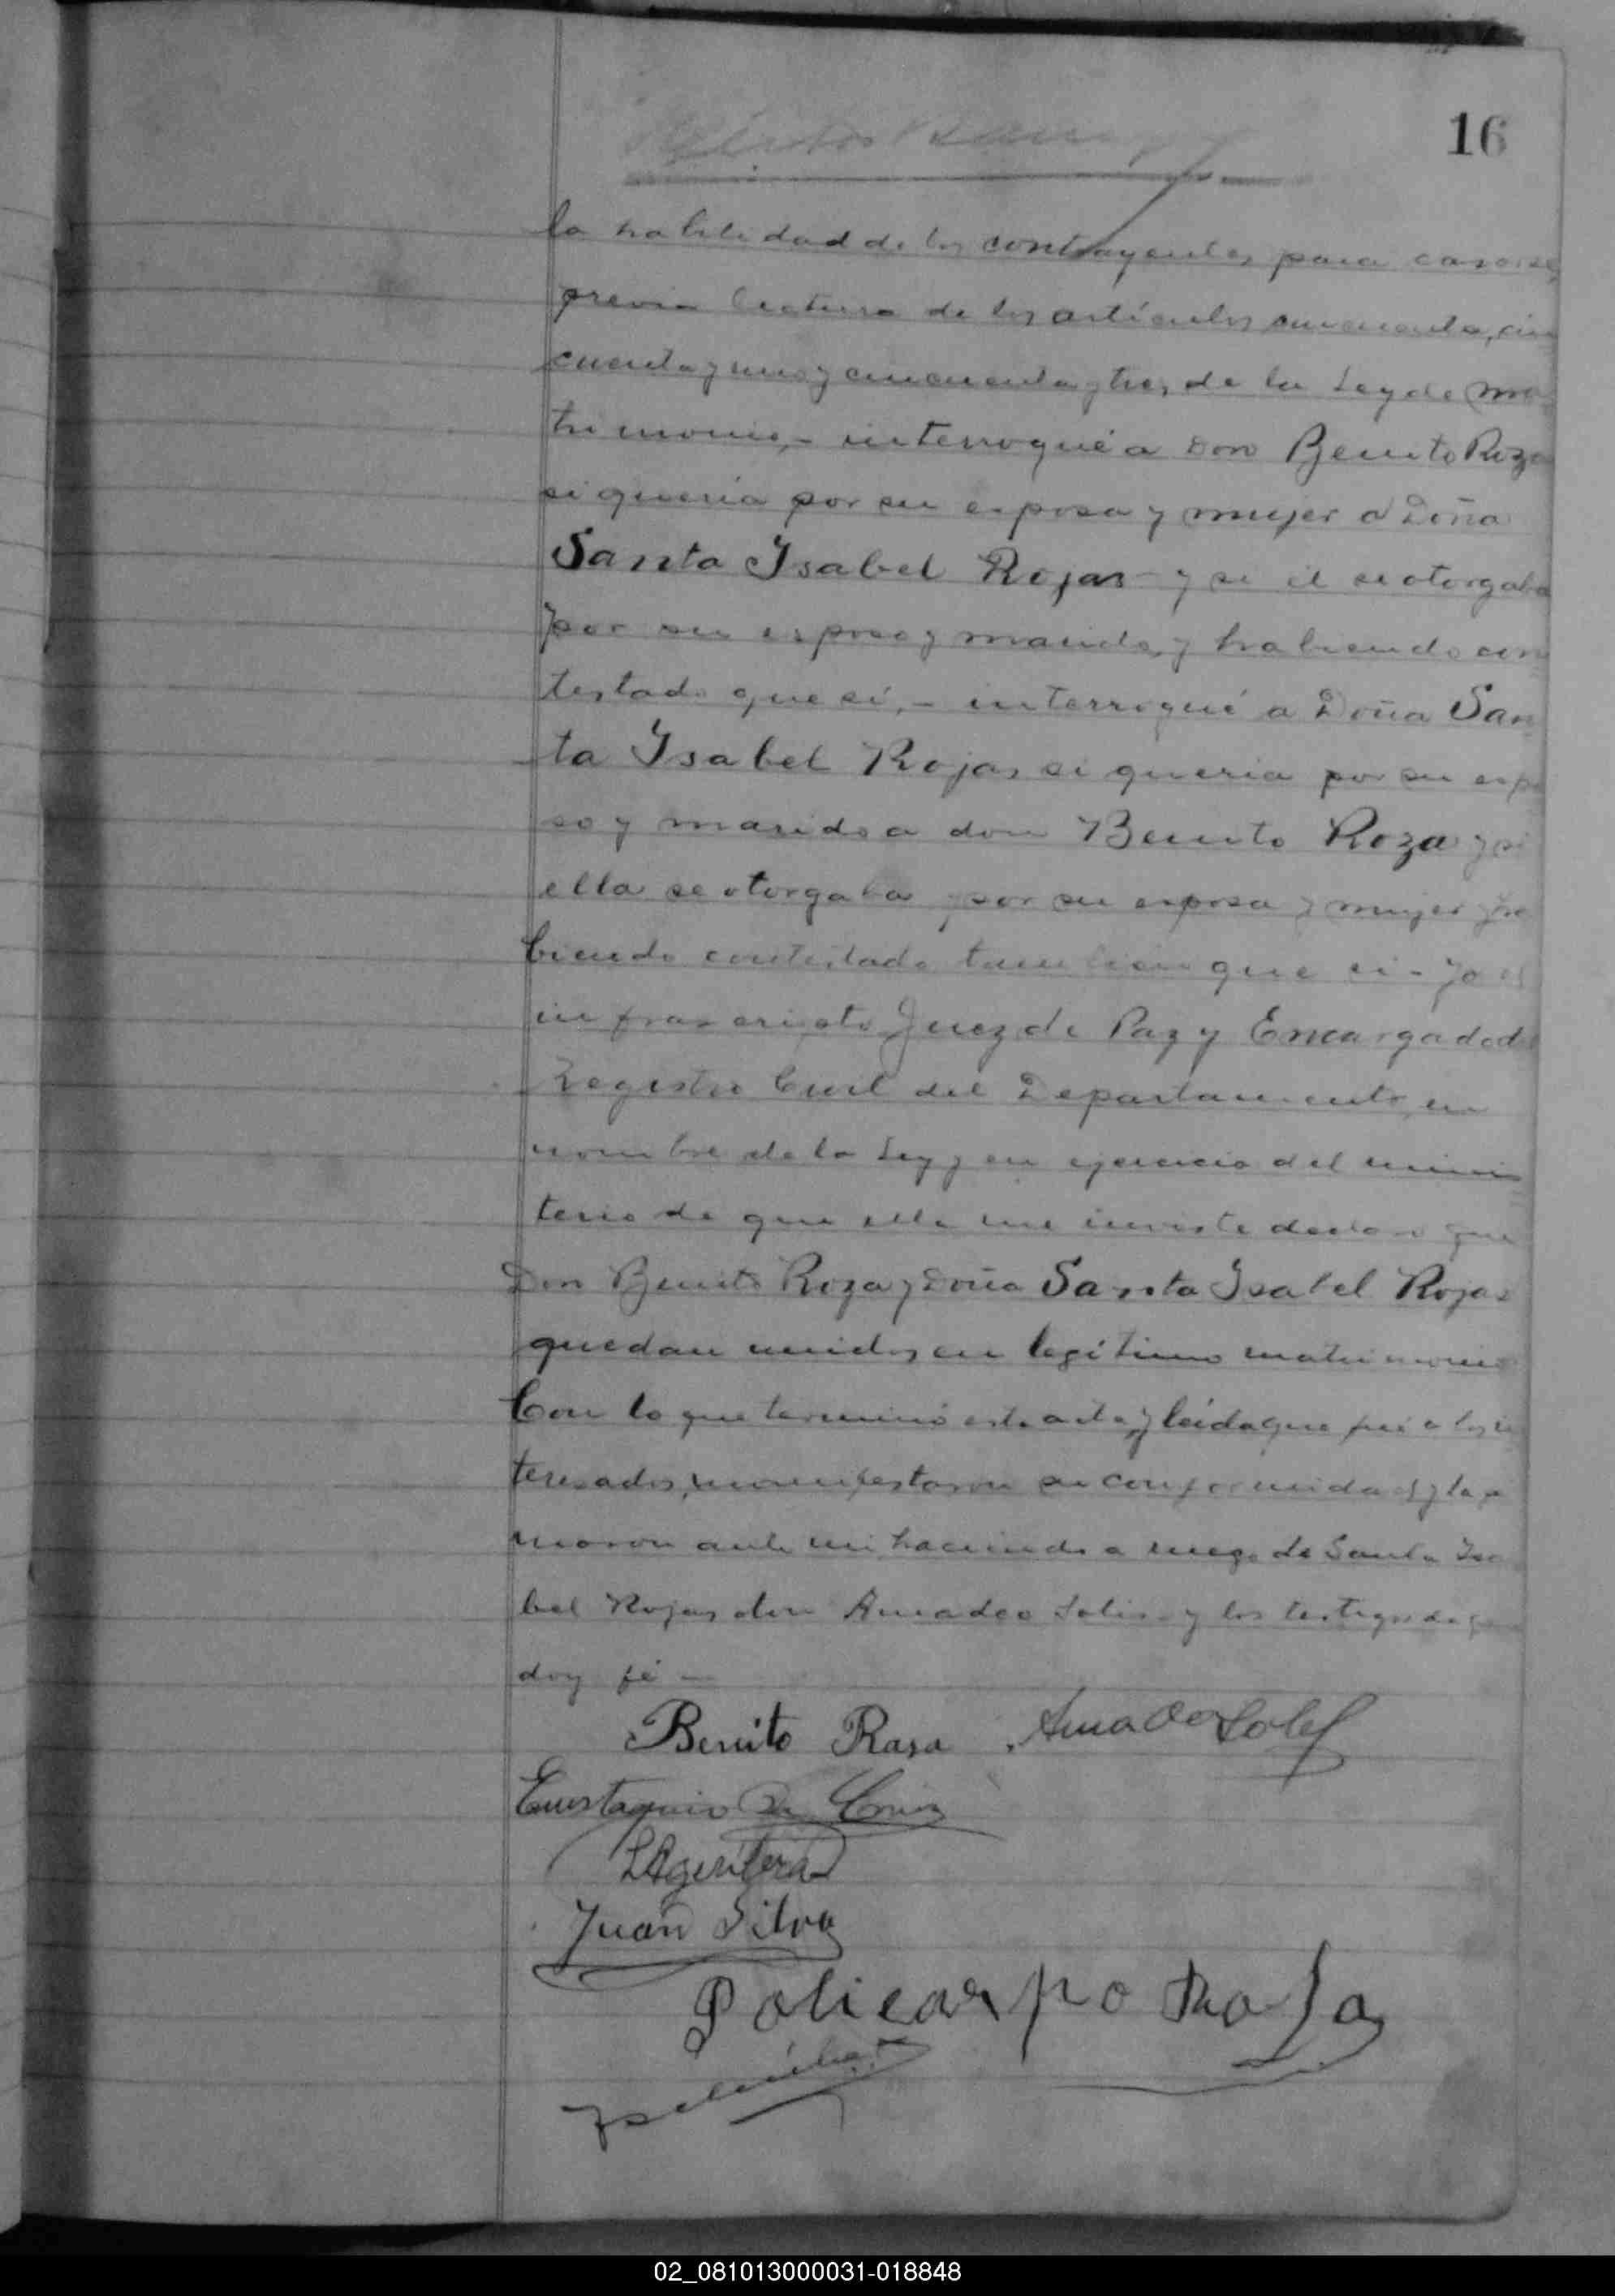 16
la habilidad de los contrayentes para casarse,
previa lectura de los artículos cincuenta, cin
cuenta y uno y cincuenta y tres de la Ley de ma
trimonio,- interrogué a Don Benito Roza
si quería por su esposa y mujer a Doña
Santa Isabel Rojas y si él se otorgaba
por su esposo y marido, y habiendo con
testado que sí,- interrogué a Doña San
ta Isabel Rojas si quería por su espo
so y marido a don Benito Roza y si
ella se otorgaba por su esposa y mujer y ha
biendo contestado tambien que si- Yo el
infrascripto Juez de Paz y Encargado del
Registro Civil del Departamento, en
nombre de la Ley y en ejercicio del minis
terio de que ella me inviste declaro que
Don Benito Roza y Doña Santa Isabel Rojas
quedan unidos en legítimo matrimonio
Con lo que terminó este acta, y leída que fué a los in
teresados, manifestaron su conformidad y la fir
maron ante mi haciendo a ruego de Santa Isa
bel Rojas don Amadeo Solis y los testigos de que
doy fé -
Benito Rasa Amadeo Solis
Eustaquio
Juan Silva
Policarpo
02_081013000031-018848